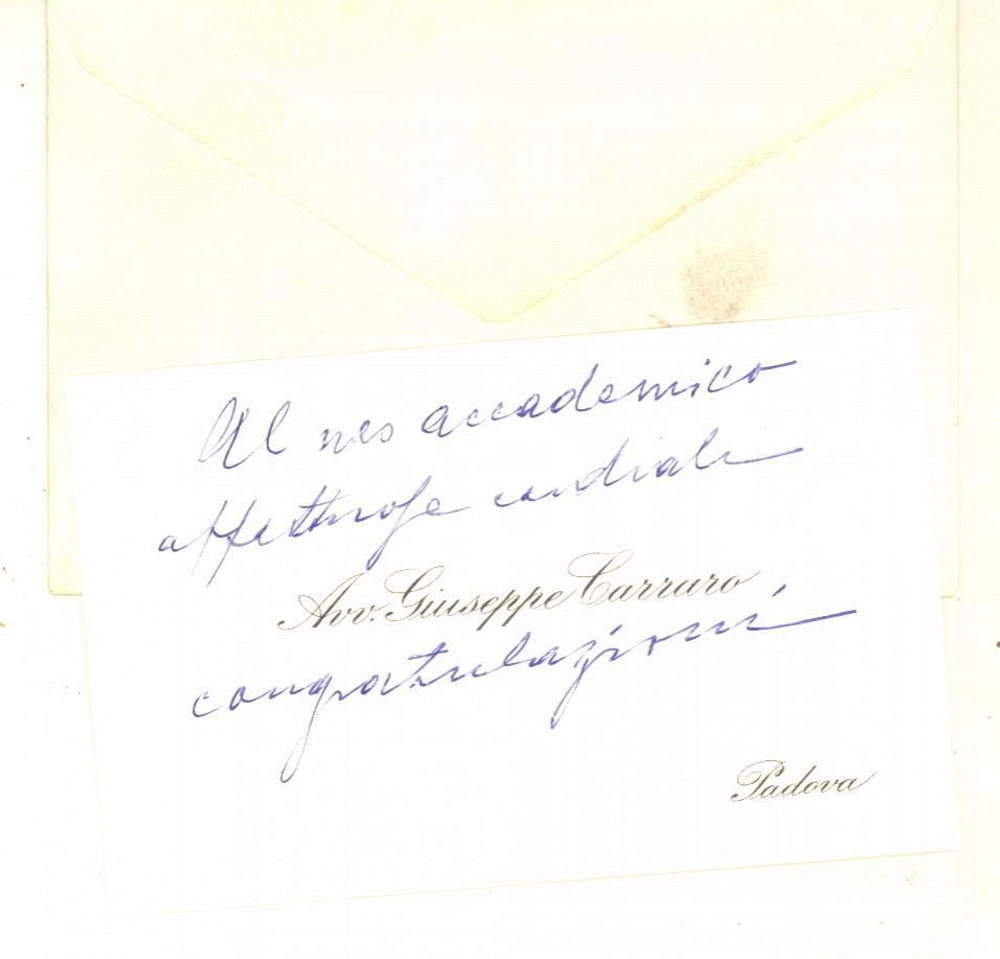 Al neo accademico
affettuose cordiali
Avv. Giuseppe Carraro
congratulazioni
Padova